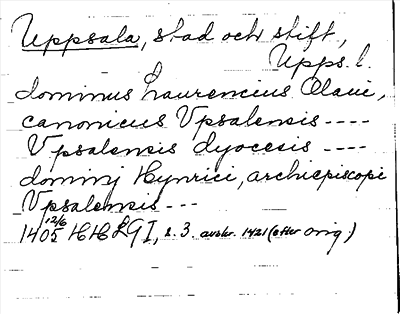 Uppsala, stad och stift,
Upps. l.
dominus Laurencius Olaui,
canonicus Vpsalensis ----
Vpsalensis dyocesis ----
dominj Hynrici, archiepiscopi
Vpsalensis ---
12/6
1405 HH 1, s. 3. avskr. 1421 (efter orig)